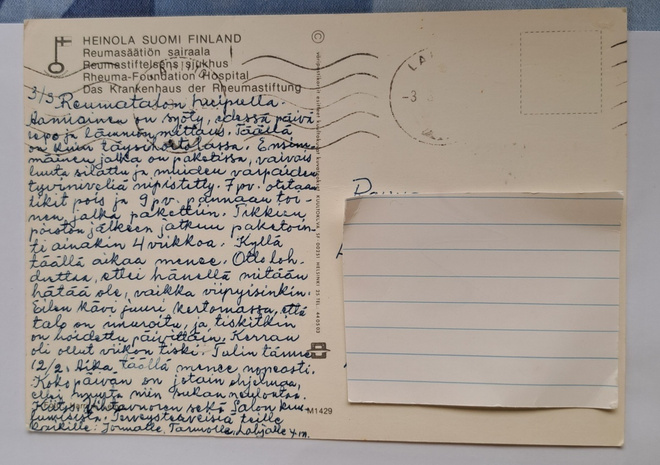 HEINOLA SUOMI FINLAND
Reumasäätiön sairaala
Reumastiftelsens sjukhus
Rheuma-Foundation Hospital
Das Krankenhaus der Rheumastiftung
3/3 Reumatalon huipulla.
Aamiainen on syöty, edessä päivä
lepo ja lämmön mittaus. Täällä
on kuin täysihoitolassa. Ensim-
mäinen jalka on paketissa, vaivais
luuta silattu ja muiden varpaiden
tyviniveliä nipistetty. 7 pv. otetaan
tikit pois ja 9 pv. pannaan toi-
nen jalka pakettiin. Tikkien
poiston jälkeen jatkuu paketoin-
ti ainakin 4 viikkoa. Kyllä
täällä aikaa menee. Otto loh-
duttaa, ettei hänellä mitään
hätää ole, vaikka viipyisinkin.
Eilen kävi juuri kertomassa, että
talo on imuroitu, ja tiskitkin
on hoidettu päivittäin. Kerran
oli ollut viikon tiski. Tulin tänne
12/2. Aika täällä menee nopeasti.
Koko päivän on jotain ohjelmaa,
ellei muuta niin sukan neulontaa.
Kiitos sekä Salon
Terveyterveisiä teille
kaikille: Jormalle, Tarmolle,
LA
-3
M1429